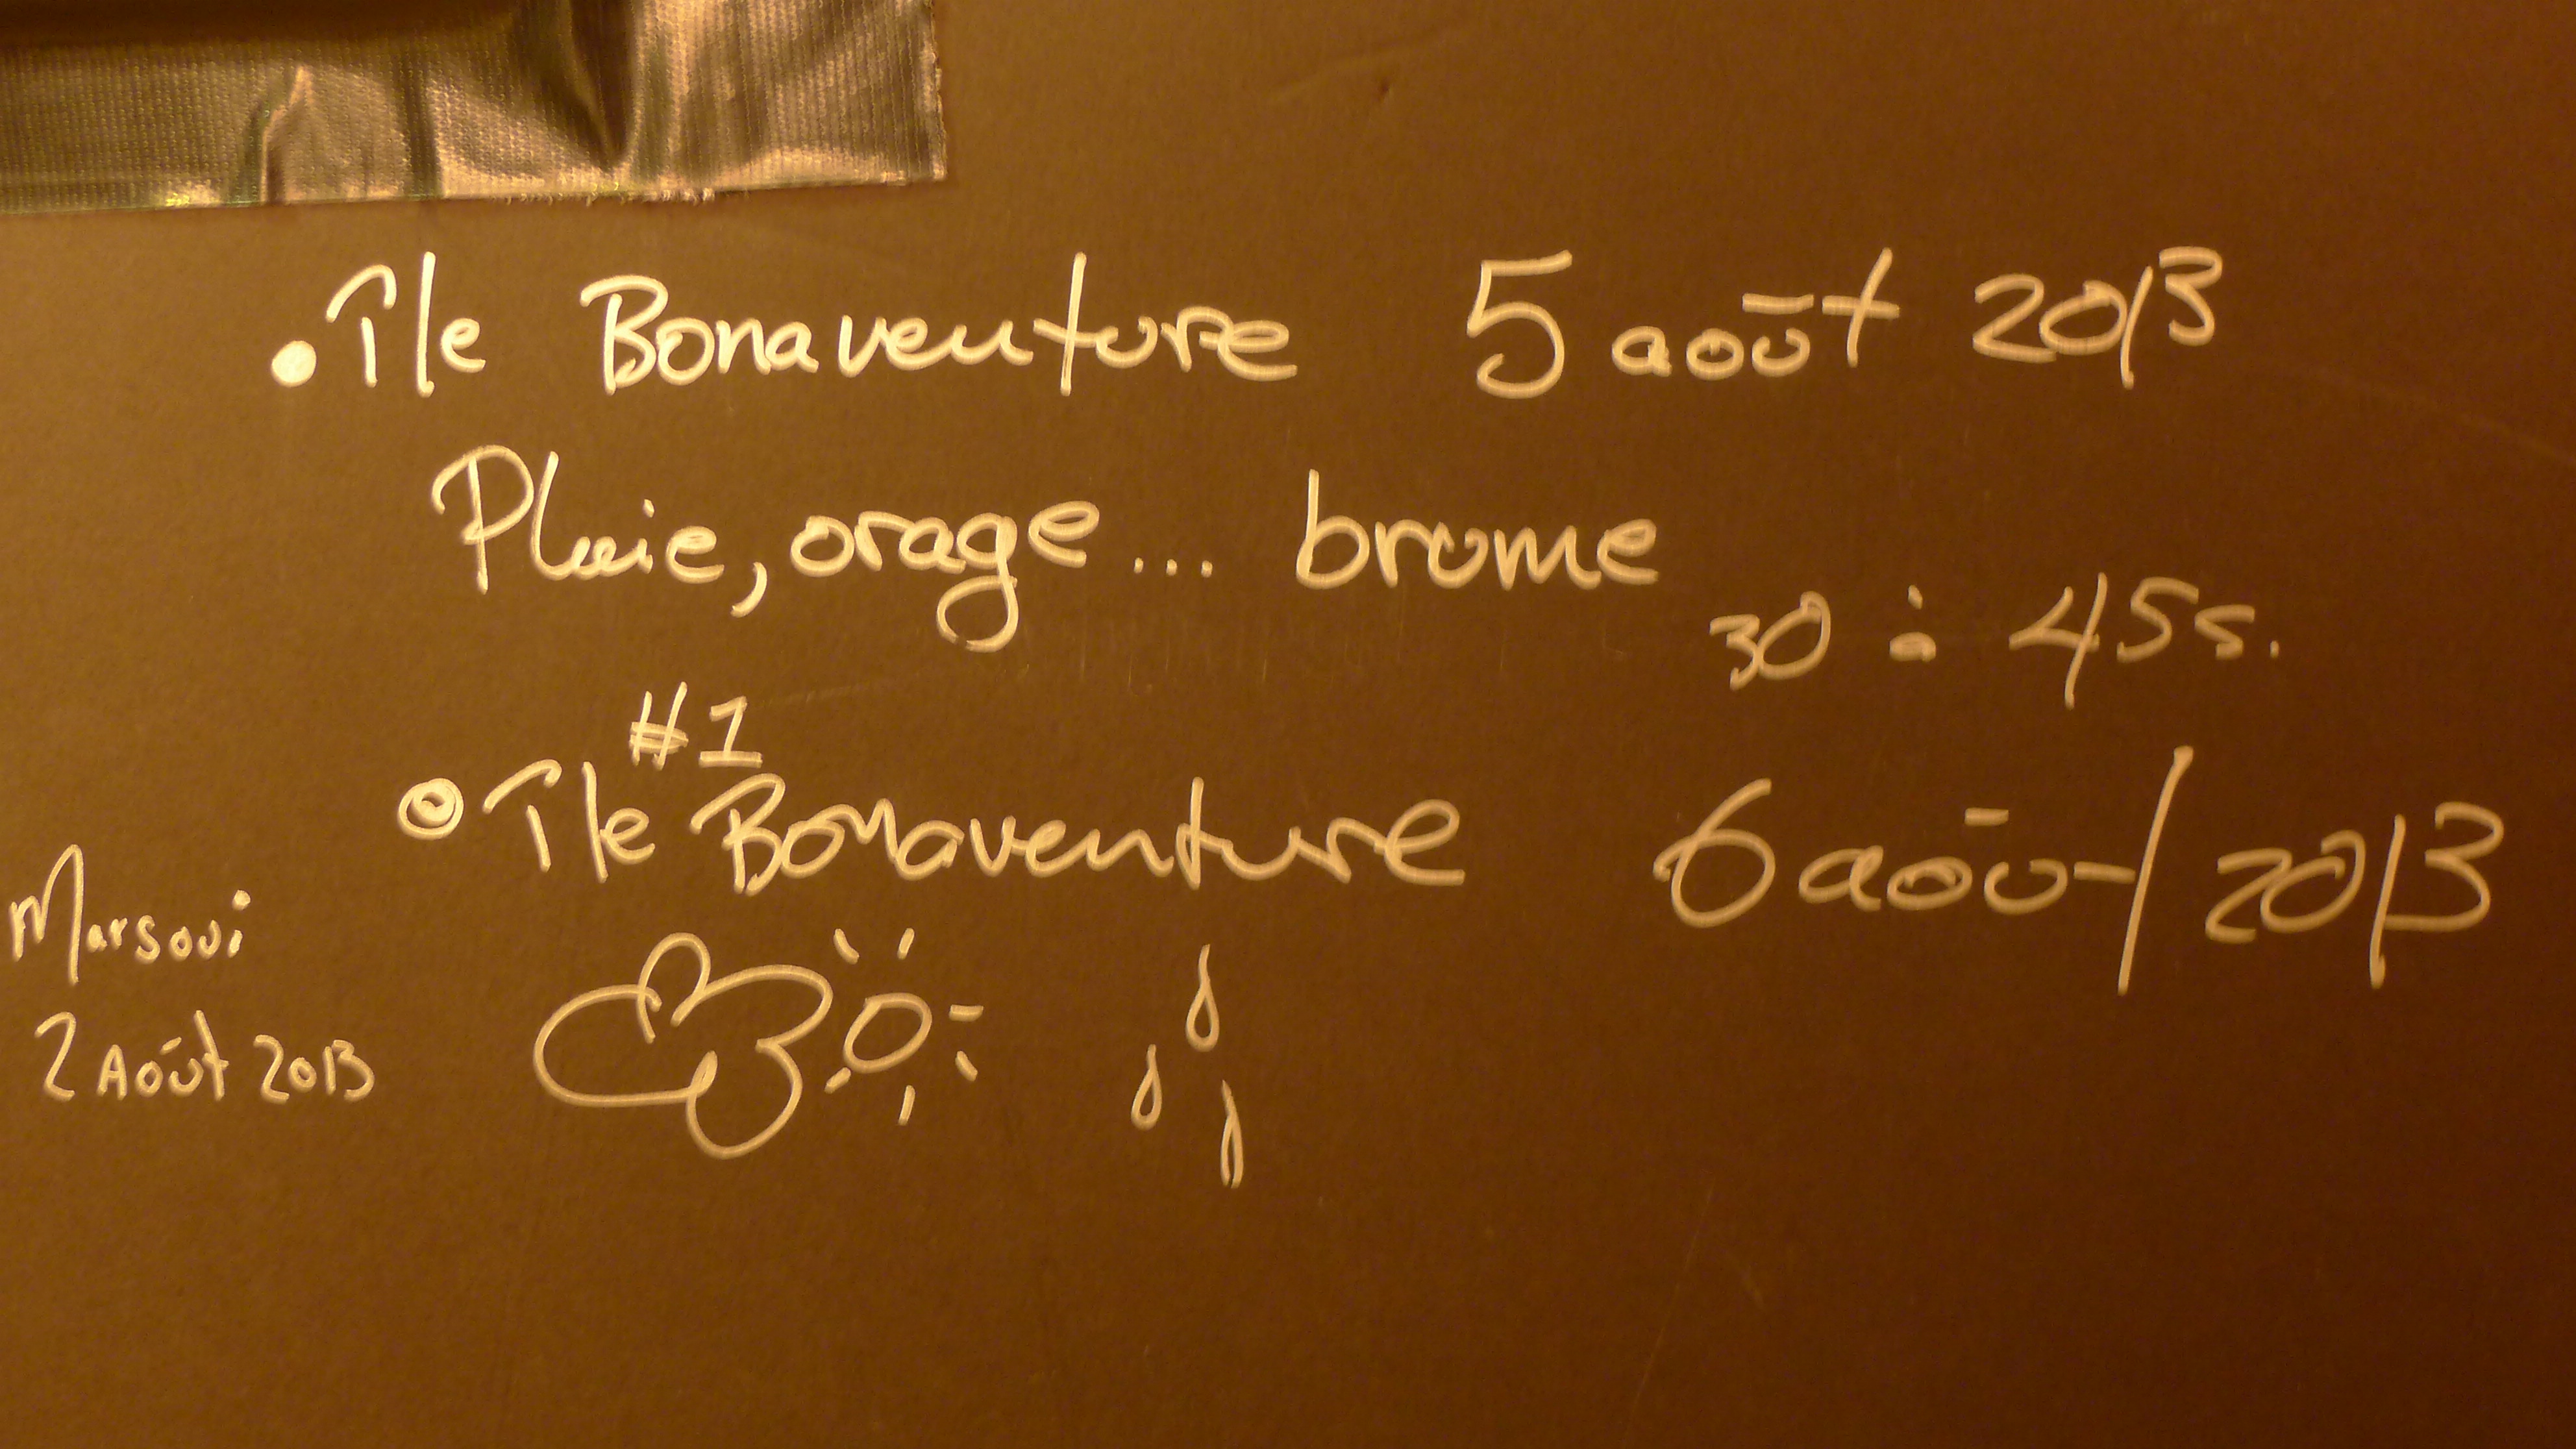 • Île Bonaventure 5 août 2013
Pluie, orage... brume
30 : 45s.
#1
Île Bonaventure 6 août 2013
Marsoui
2 Août 2013